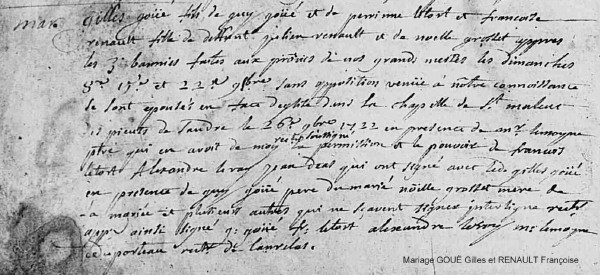 mar.
gilles goüé fils de guy goüé et de perrinne letort et francoise
renault fille de deffunt julien renault et de noelle grosset appres
les 3 bannies faites aux prosnes de nos grands messes les dimanches
8e 15e et 22e 9bre sans oppotition venüe à notre connoissance
se sont epousés en face deglise dans la chapelle de St maleuc
le 26e 9bre 1722 en presence de mre lemoyne
ptre qui en avoit de moy rectr soussigné la permission et le pouvoir de francois
letort Alexandre leray jean qui ont signé avec ledt gilles goüé
en presence de guy goüé pere du marié nöille grosset mere de
la mariée et plusieurs autres qui ne scavent signer interligne rectr
appr ainsi signé g: goüé f: letort alexandre leray m: lemoyne
porteau rectr de lanrelas.
Mariage GOUË Gilles et RENAULT Françoise